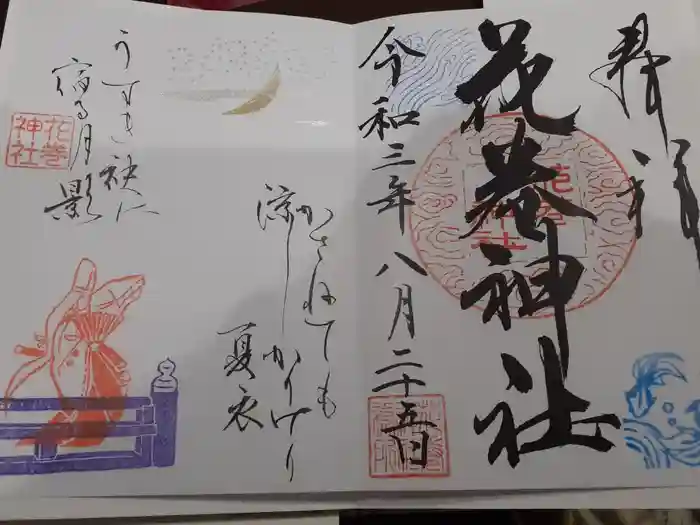 奉拝
花巻神社
令和三年八月二十五日
かさねても
涼しかりけり
夏衣
うすき袂に
宿る月影
花巻
神社